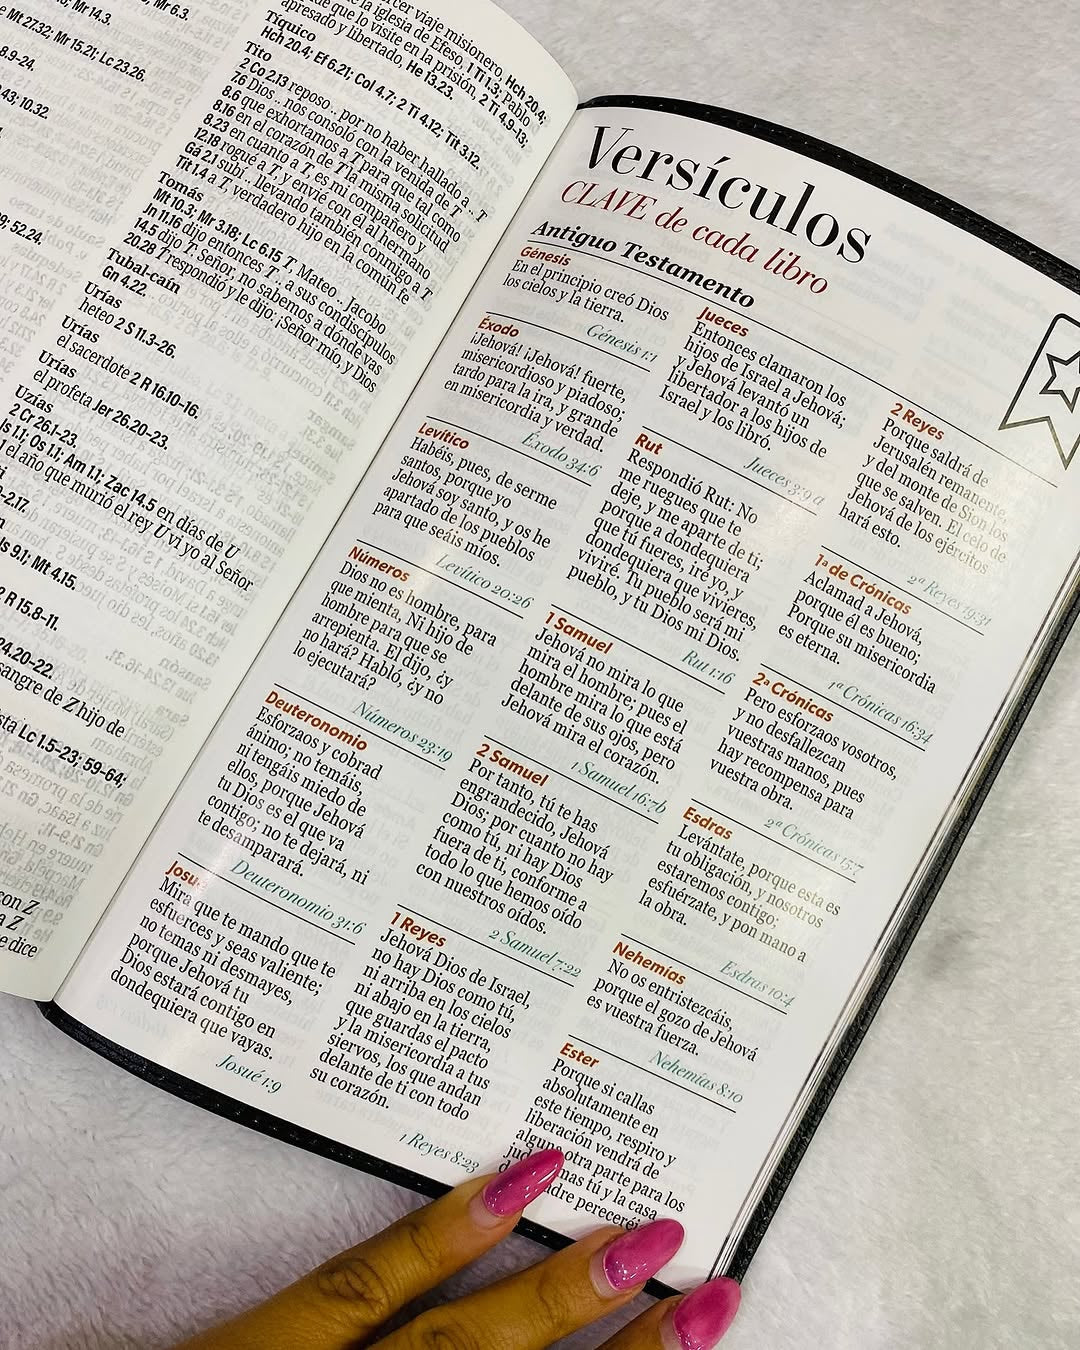 r 14.3.
Mr 6.3.
e Mt 27.32; Mr 15.21; Lc 23.26.
8.9-24.
43; 10.32.
52.24.
2-2.17.
Mt 4.15.
2 R 15.8-11.
24.20-22.
sangre de Z hijo de
Lc 1.5-23; 59-64;
con Z
a Z
e dice
viaje misionero,
la iglesia de Éfeso, 1 Ti 1.3; Pablo
que lo visite en la prisión, 2 Ti 4.9-13;
apresado y libertado, He 13.23.
Tíquico
Hch 20.4; Ef 6.21; Col 4.7; 2 Ti 4.12; Tit 3.12.
Tito
2 Co 2.13 reposo .. por no haber hallado a .. T
7.6 Dios .. nos consoló con la venida de T
8.6 que exhortamos a T para que tal como
8.16 en el corazón de T la misma solicitud
8.23 en cuanto a T, es mi compañero y
12.18 rogué a T, y envié con él al hermano
Gá 2.1 subí .. llevando también conmigo a T
Tit 1.4 a T, verdadero hijo en la común fe
Tomás
Mt 10.3; Mr 3.18; Lc 6.15 T, Mateo .. Jacobo
Jn 11.16 dijo entonces T .. a sus condiscípulos
14.5 dijo T: Señor, no sabemos a dónde vas
20.28 T respondió y le dijo: ¡Señor mío, y Dios
Tubal-caín
Gn 4.22.
Urías
heteo 2 S 11.3-26.
Urías
el sacerdote 2 R 16.10-16.
Urías
el profeta Jer 26.20-23.
Uzías
2 Cr 26.1-23.
Is 1.1; Os 1.1; Am 1.1; Zac 14.5 en días de U
el año que murió el rey U vi yo al Señor
Versículos
CLAVE de cada libro
Antiguo Testamento
Génesis
En el principio creó Dios
los cielos y la tierra.
Génesis 1:1
Éxodo
¡Jehová! ¡Jehová! fuerte,
misericordioso y piadoso;
tardo para la ira, y grande
en misericordia y verdad.
Éxodo 34:6
Levítico
Habéis, pues, de serme
santos, porque yo
Jehová soy santo, y os he
apartado de los pueblos
para que seáis míos.
Levítico 20:26
Números
Dios no es hombre, para
que mienta, Ni hijo de
hombre para que se
arrepienta. El dijo, ¿y
no hará? Habló, ¿y no
lo ejecutará?
Números 23:19
Deuteronomio
Esforzaos y cobrad
ánimo; no temáis,
ni tengáis miedo de
ellos, porque Jehová
tu Dios es el que va
contigo; no te dejará, ni
te desamparará.
Deuteronomio 31:6
Josué
Mira que te mando que te
esfuerces y seas valiente;
no temas ni desmayes,
porque Jehová tu
Dios estará contigo en
dondequiera que vayas.
Josué 1:9
Jueces
Entonces clamaron los
hijos de Israel a Jehová;
y Jehová levantó un
libertador a los hijos de
Israel y los libró.
Jueces 3:9 a
Rut
Respondió Rut: No
me ruegues que te
deje, y me aparte de ti;
porque a dondequiera
que tú fueres, iré yo, y
dondequiera que vivieres,
viviré. Tu pueblo será mi
pueblo, y tu Dios mi Dios.
Rut 1:16
1 Samuel
Jehová no mira lo que
mira el hombre; pues el
hombre mira lo que está
delante de sus ojos, pero
Jehová mira el corazón.
1 Samuel 16:7b
2 Samuel
Por tanto, tú te has
engrandecido, Jehová
Dios; por cuanto no hay
como tú, ni hay Dios
fuera de ti, conforme a
todo lo que hemos oído
con nuestros oídos.
2 Samuel 7:22
1 Reyes
Jehová Dios de Israel,
no hay Dios como tú,
ni arriba en los cielos
ni abajo en la tierra,
que guardas el pacto
y la misericordia a tus
siervos, los que andan
delante de ti con todo
su corazón.
1 Reyes 8:23
2 Reyes
Porque saldrá de
Jerusalén remanente,
y del monte de Sion los
que se salven. El celo de
Jehová de los ejércitos
hará esto.
2ª Reyes 19:31
1ª de Crónicas
Aclamad a Jehová,
porque él es bueno;
Porque su misericordia
es eterna.
1ª Crónicas 16:34
2ª Crónicas
Pero esforzaos vosotros,
y no desfallezcan
vuestras manos, pues
hay recompensa para
vuestra obra.
2ª Crónicas 15:7
Esdras
Levántate, porque esta es
tu obligación, y nosotros
estaremos contigo;
esfuérzate, y pon mano a
la obra.
Esdras 10:4
Nehemías
No os entristezcáis,
porque el gozo de Jehová
es vuestra fuerza.
Nehemías 8:10
Ester
Porque si callas
absolutamente en
este tiempo, respiro y
liberación vendrá de
alguna otra parte para los
mas tú y la casa